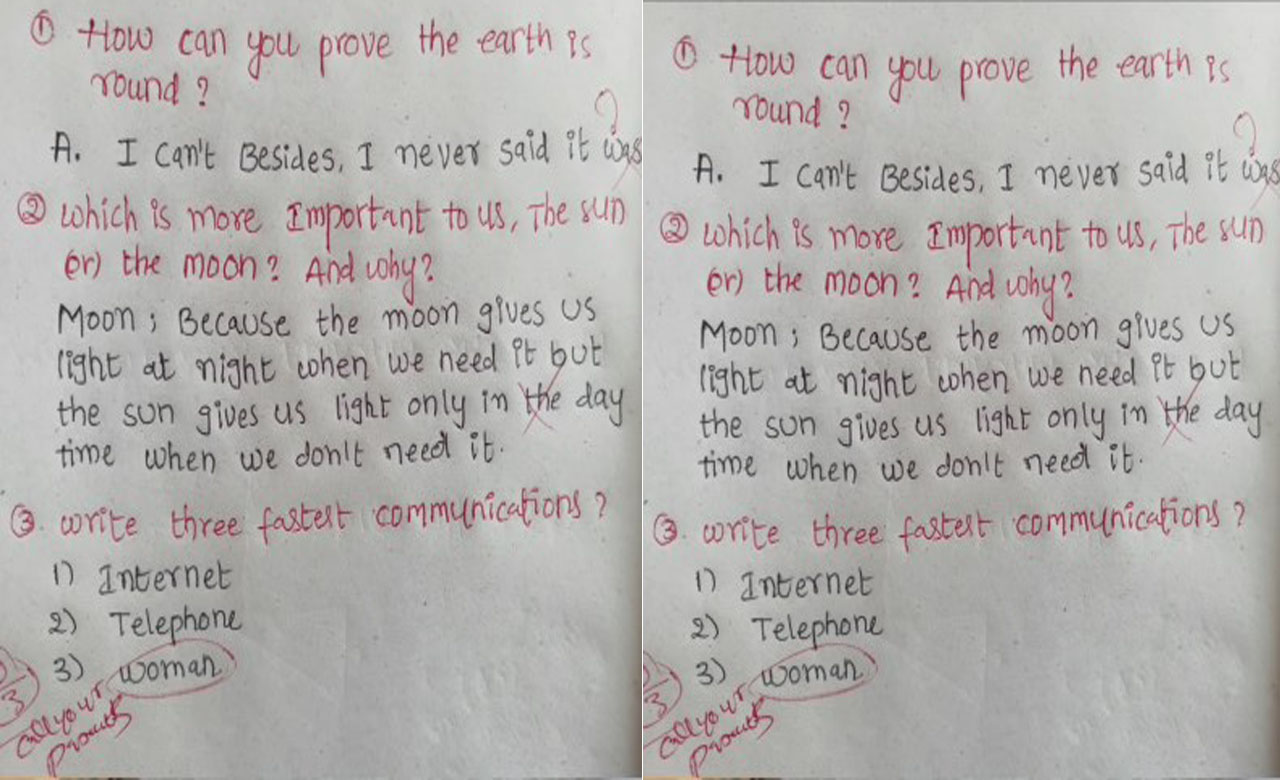 ① How can you prove the earth is
round ?
?
A. I can't Besides, I never said it was
② which is more Important to us, The sun
(or) the moon? And why?
Moon ; Because the moon gives us
light at night when we need it but
the sun gives us light only in the day
time when we don't need it.
③. write three fastest communications ?
1) Internet
2) Telephone
3) woman
3
call your
parents
① How can you prove the earth is
round ?
?
A. I can't Besides, I never said it was
② which is more Important to us, The sun
(or) the moon? And why?
Moon ; Because the moon gives us
light at night when we need it but
the sun gives us light only in the day
time when we don't need it.
③. write three fastest communications ?
1) Internet
2) Telephone
3) woman
3
call your
parents